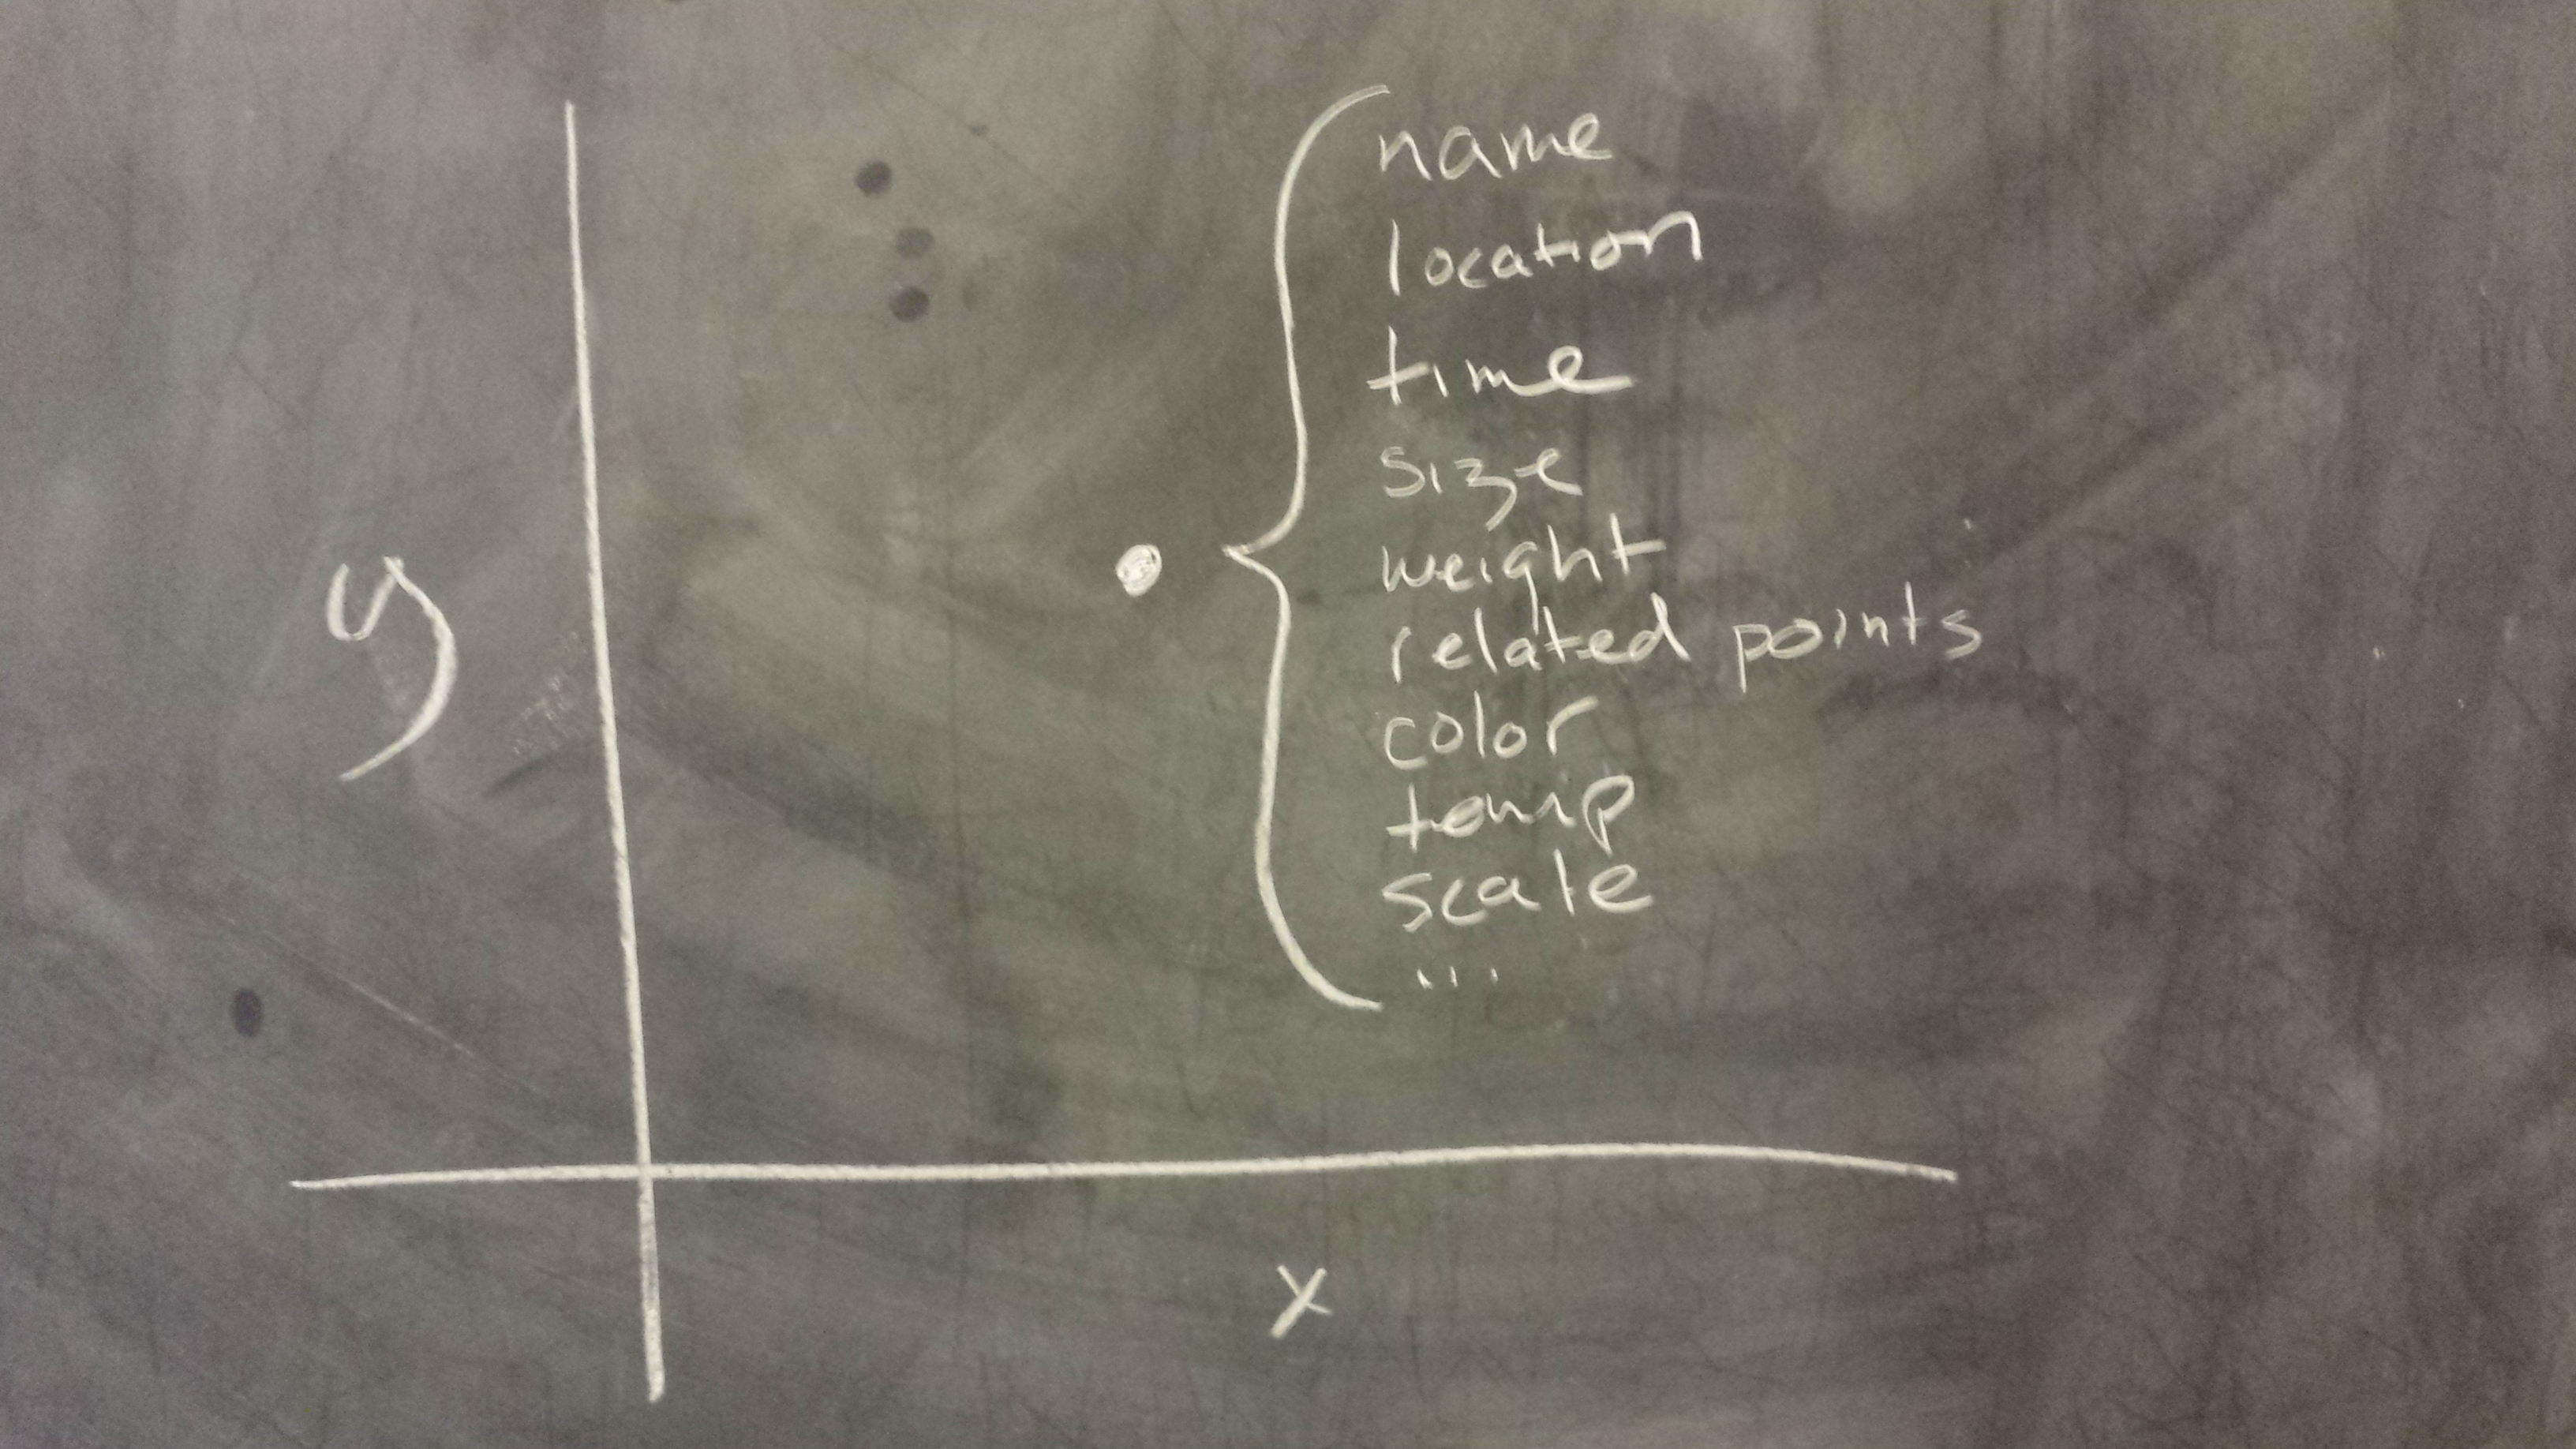 name
location
time
size
weight
related points
color
temp
scale
...
y
x